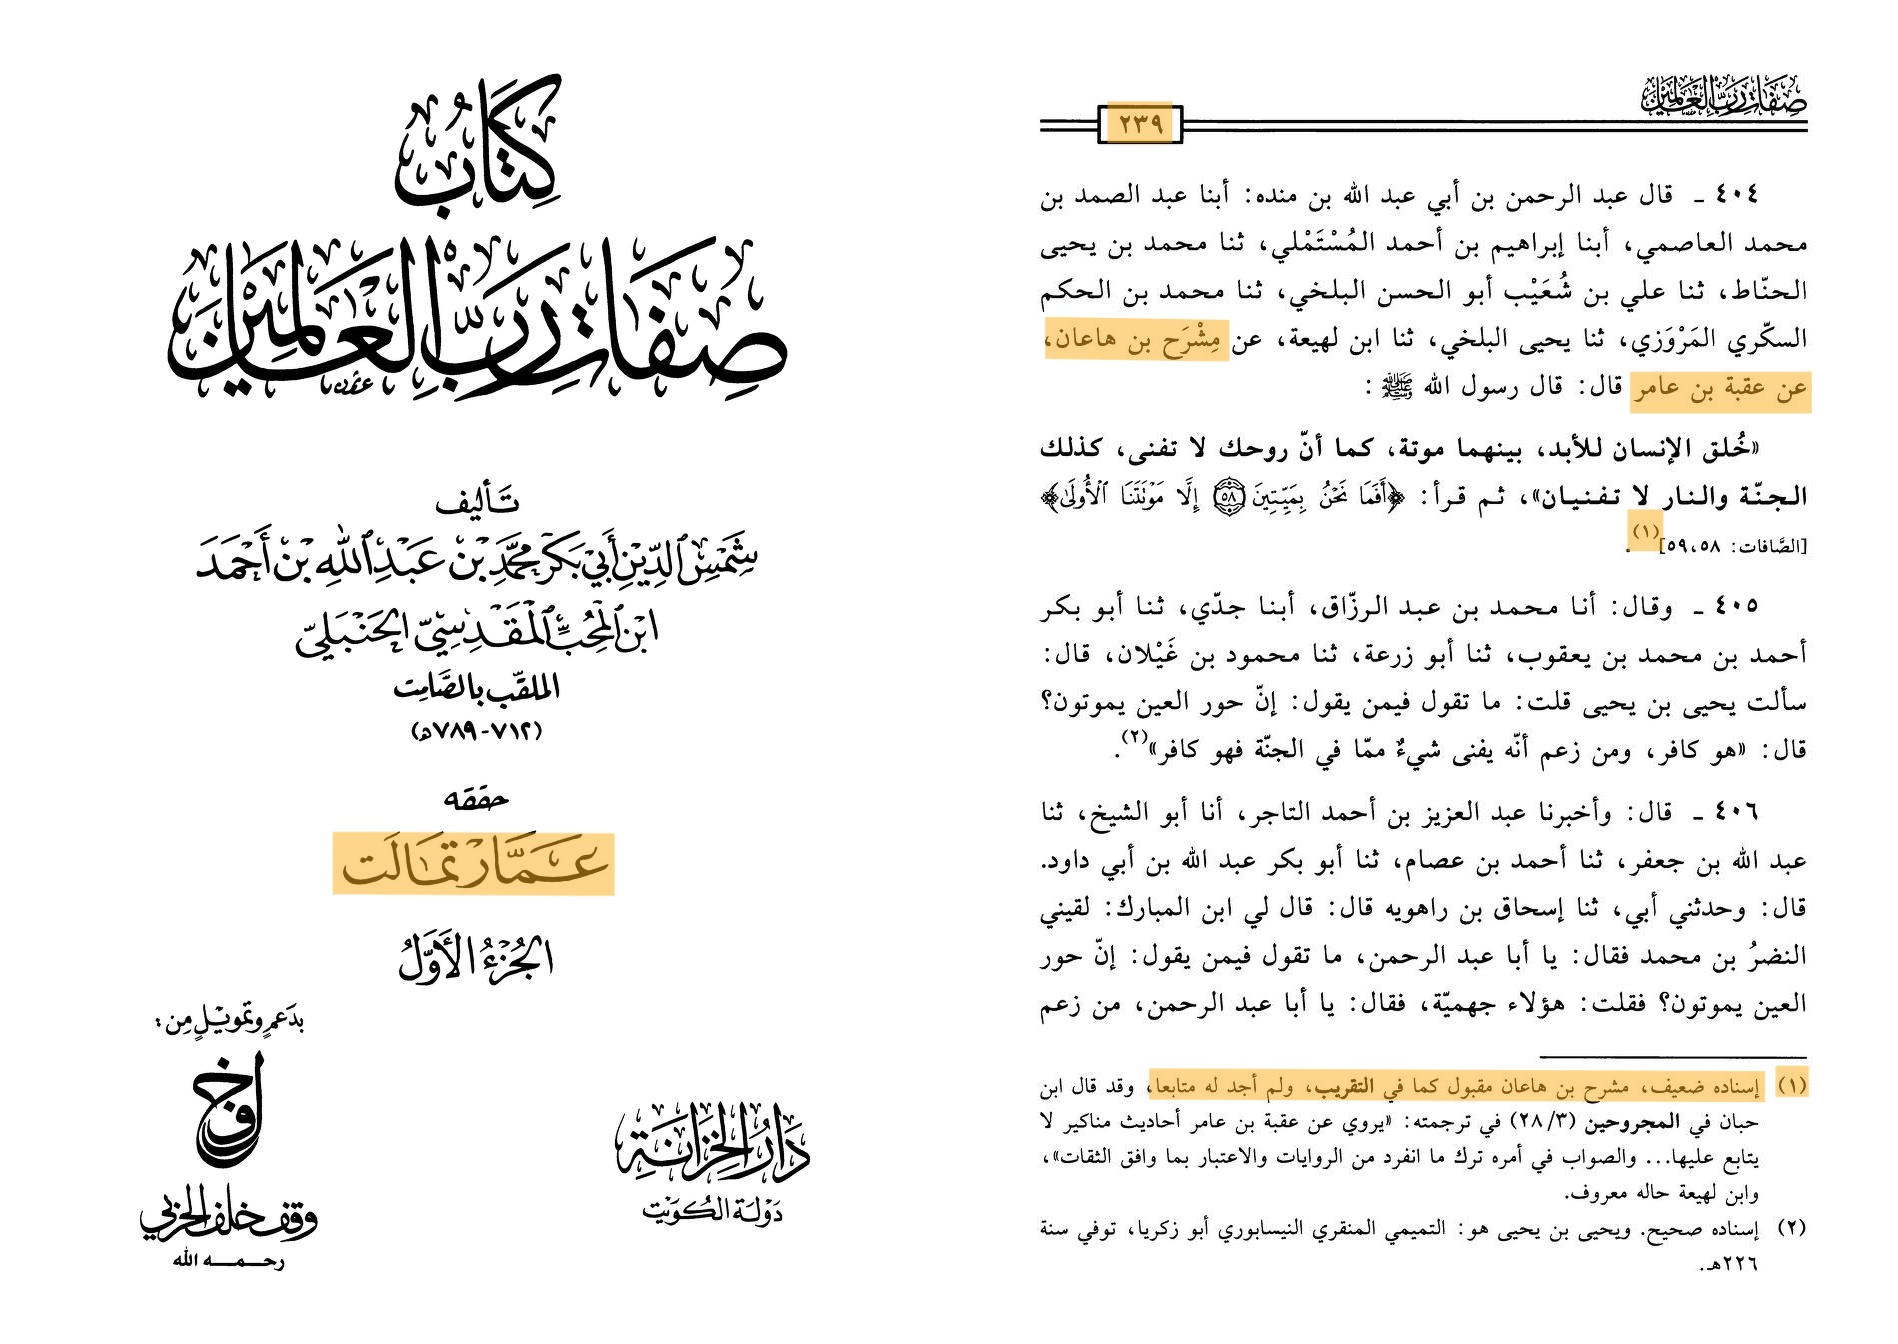 كتاب
صفات رب العالمين
تأليف
شمس الدين أبي بكر محمد بن عبد الله بن أحمد
ابن المحب المقدسي الحنبلي
الملقب بالصامت
(٧١٢-٧٨٩هـ)
حققه
عمار تمالت
الجزء الأول
بدعم وتمويل من:
وقف خلف الحزبي
رحمه الله
دار الخزانة
دولة الكويت
صفات رب العالمين
٢٣٩
٤٠٤ ـ قال عبد الرحمن بن أبي عبد الله بن منده: أبنا عبد الصمد بن
محمد العاصمي، أبنا إبراهيم بن أحمد المُسْتَمْلي، ثنا محمد بن يحيى
الحنّاط، ثنا علي بن شُعَيْب أبو الحسن البلخي، ثنا محمد بن الحكم
السكّري المَرْوَزي، ثنا يحيى البلخي، ثنا ابن لهيعة، عن مِشْرَح بن هاعان،
عن عقبة بن عامر قال: قال رسول الله ﷺ:
«خُلق الإنسان للأبد، بينهما موتة، كما أنّ روحك لا تفنى، كذلك
الجنّة والنار لا تفنيان»، ثم قرأ: ﴿أَفَمَا نَحْنُ بِمَيِّتِينَ ٥٨ إِلَّا مَوْتَتَنَا ٱلْأُولَىٰ﴾
[الصَّافات: ٥٨، ٥٩](١).
٤٠٥ ـ وقال: أنا محمد بن عبد الرزّاق، أبنا جدّي، ثنا أبو بكر
أحمد بن محمد بن يعقوب، ثنا أبو زرعة، ثنا محمود بن غَيْلان، قال:
سألت يحيى بن يحيى قلت: ما تقول فيمن يقول: إنّ حور العين يموتون؟
قال: «هو كافر، ومن زعم أنّه يفنى شيءٌ ممّا في الجنّة فهو كافر»(٢).
٤٠٦ ـ قال: وأخبرنا عبد العزيز بن أحمد التاجر، أنا أبو الشيخ، ثنا
عبد الله بن جعفر، ثنا أحمد بن عصام، ثنا أبو بكر عبد الله بن أبي داود.
قال: وحدثني أبي، ثنا إسحاق بن راهويه قال: قال لي ابن المبارك: لقيني
النضرُ بن محمد فقال: يا أبا عبد الرحمن، ما تقول فيمن يقول: إنّ حور
العين يموتون؟ فقلت: هؤلاء جهميّة، فقال: يا أبا عبد الرحمن، من زعم
(١) إسناده ضعيف، مشرح بن هاعان مقبول كما في التقريب، ولم أجد له متابعا، وقد قال ابن
حبان في المجروحين (٢٨/٣) في ترجمته: «يروي عن عقبة بن عامر أحاديث مناكير لا
يتابع عليها... والصواب في أمره ترك ما انفرد من الروايات والاعتبار بما وافق الثقات»،
وابن لهيعة حاله معروف.
(٢) إسناده صحيح. ويحيى بن يحيى هو: التميمي المنقري النيسابوري أبو زكريا، توفي سنة
٢٢٦هـ.